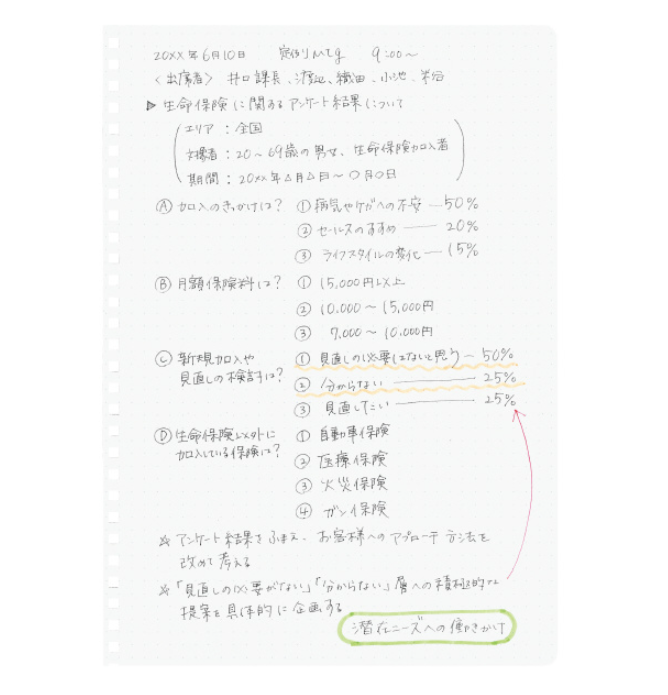 20XX年6月10日 定例Mtg 9:00〜
〈出席者〉 井口課長、渡辺、織田、小池、米谷
▶ 生命保険に関するアンケート結果について
エリア : 全国
対象者 : 20〜69歳の男女、生命保険加入者
期間 : 20XX年△月△日〜○月○日
Ⓐ 加入のきっかけは? ① 病気やケガへの不安 — 50%
② セールスのすすめ — 20%
③ ライフスタイルの変化 — 15%
Ⓑ 月額保険料は? ① 15,000円以上
② 10,000〜15,000円
③ 7,000〜10,000円
Ⓒ 新規加入や ① 見直しの必要はないと思う — 50%
見直しの検討は? ② 分からない — 25%
③ 見直したい — 25%
Ⓓ 生命保険以外に ① 自動車保険
加入している保険は? ② 医療保険
③ 火災保険
④ ガン保険
※ アンケート結果をふまえ、お客様へのアプローチ方法を
改めて考える
※「見直しの必要がない」「分からない」層への積極的な
提案を具体的に企画する
潜在ニーズへの働きかけ